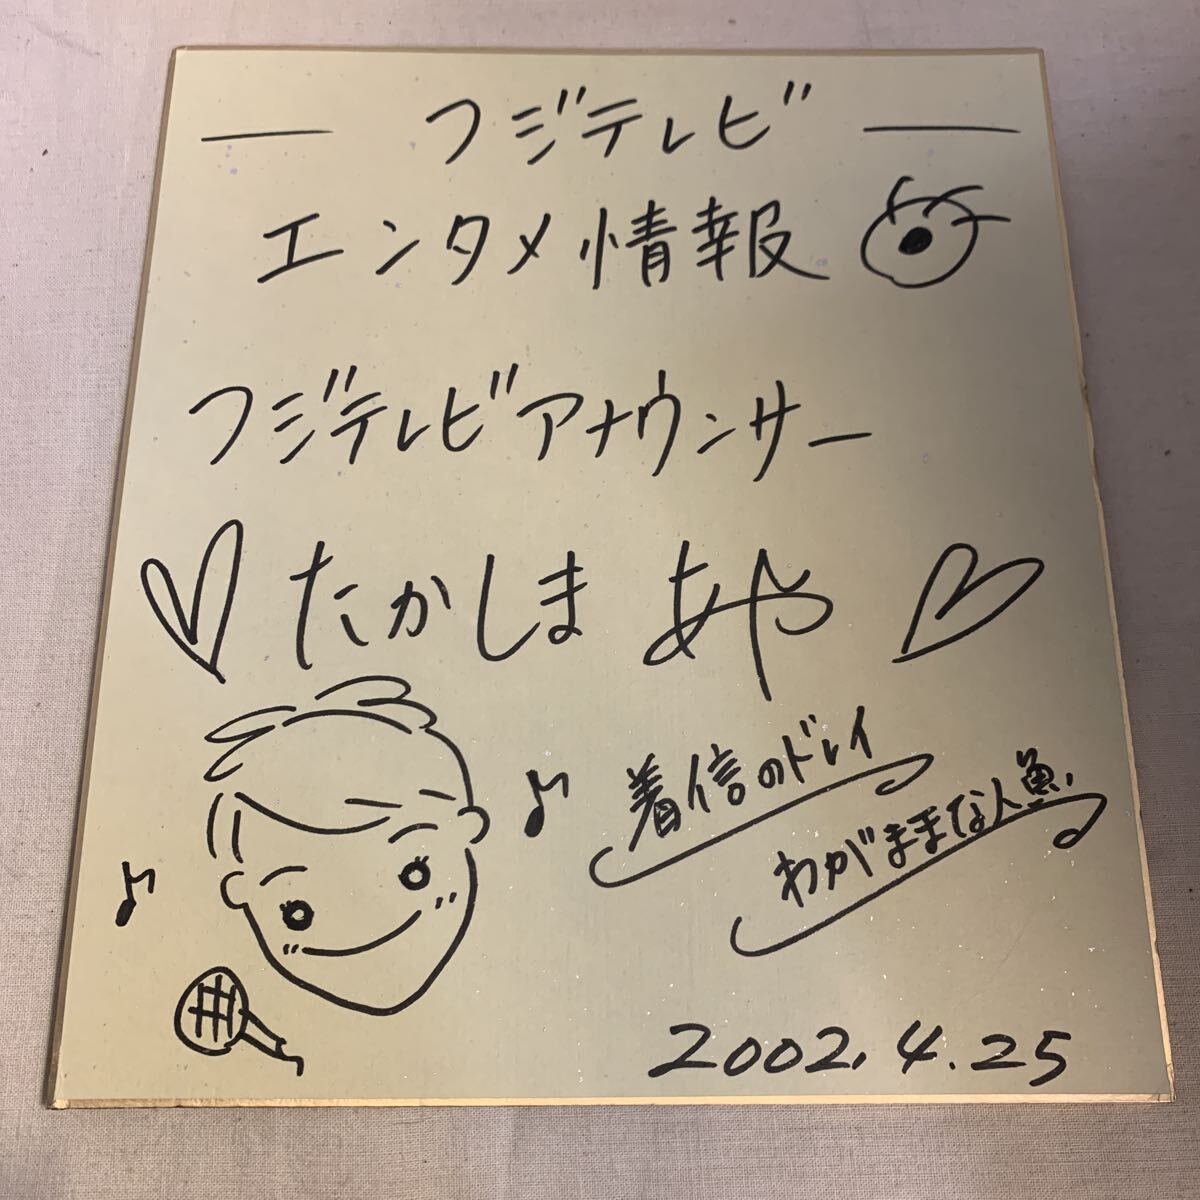 フジテレビ
エンタメ情報
フジテレビアナウンサー
たかしま あや
着信のドレイ
わがままな人魚
2002.4.25